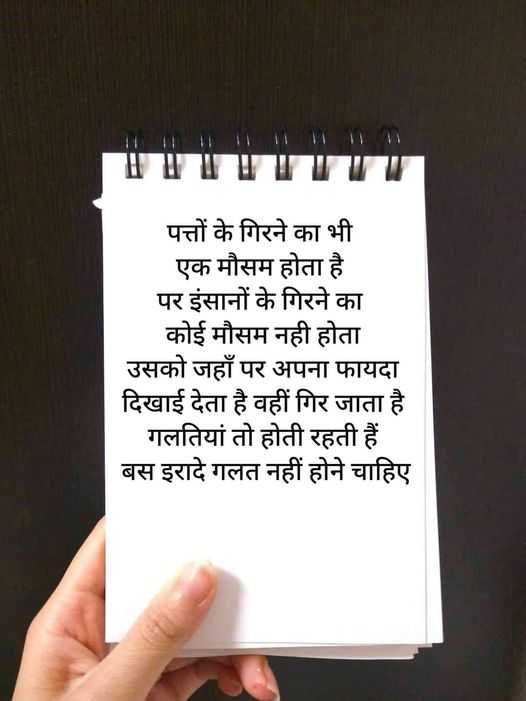 पत्तों के गिरने का भी
एक मौसम होता है
पर इंसानों के गिरने का
कोई मौसम नही होता
उसको जहाँ पर अपना फायदा
दिखाई देता है वहीं गिर जाता है
गलतियां तो होती रहती हैं
बस इरादे गलत नहीं होने चाहिए